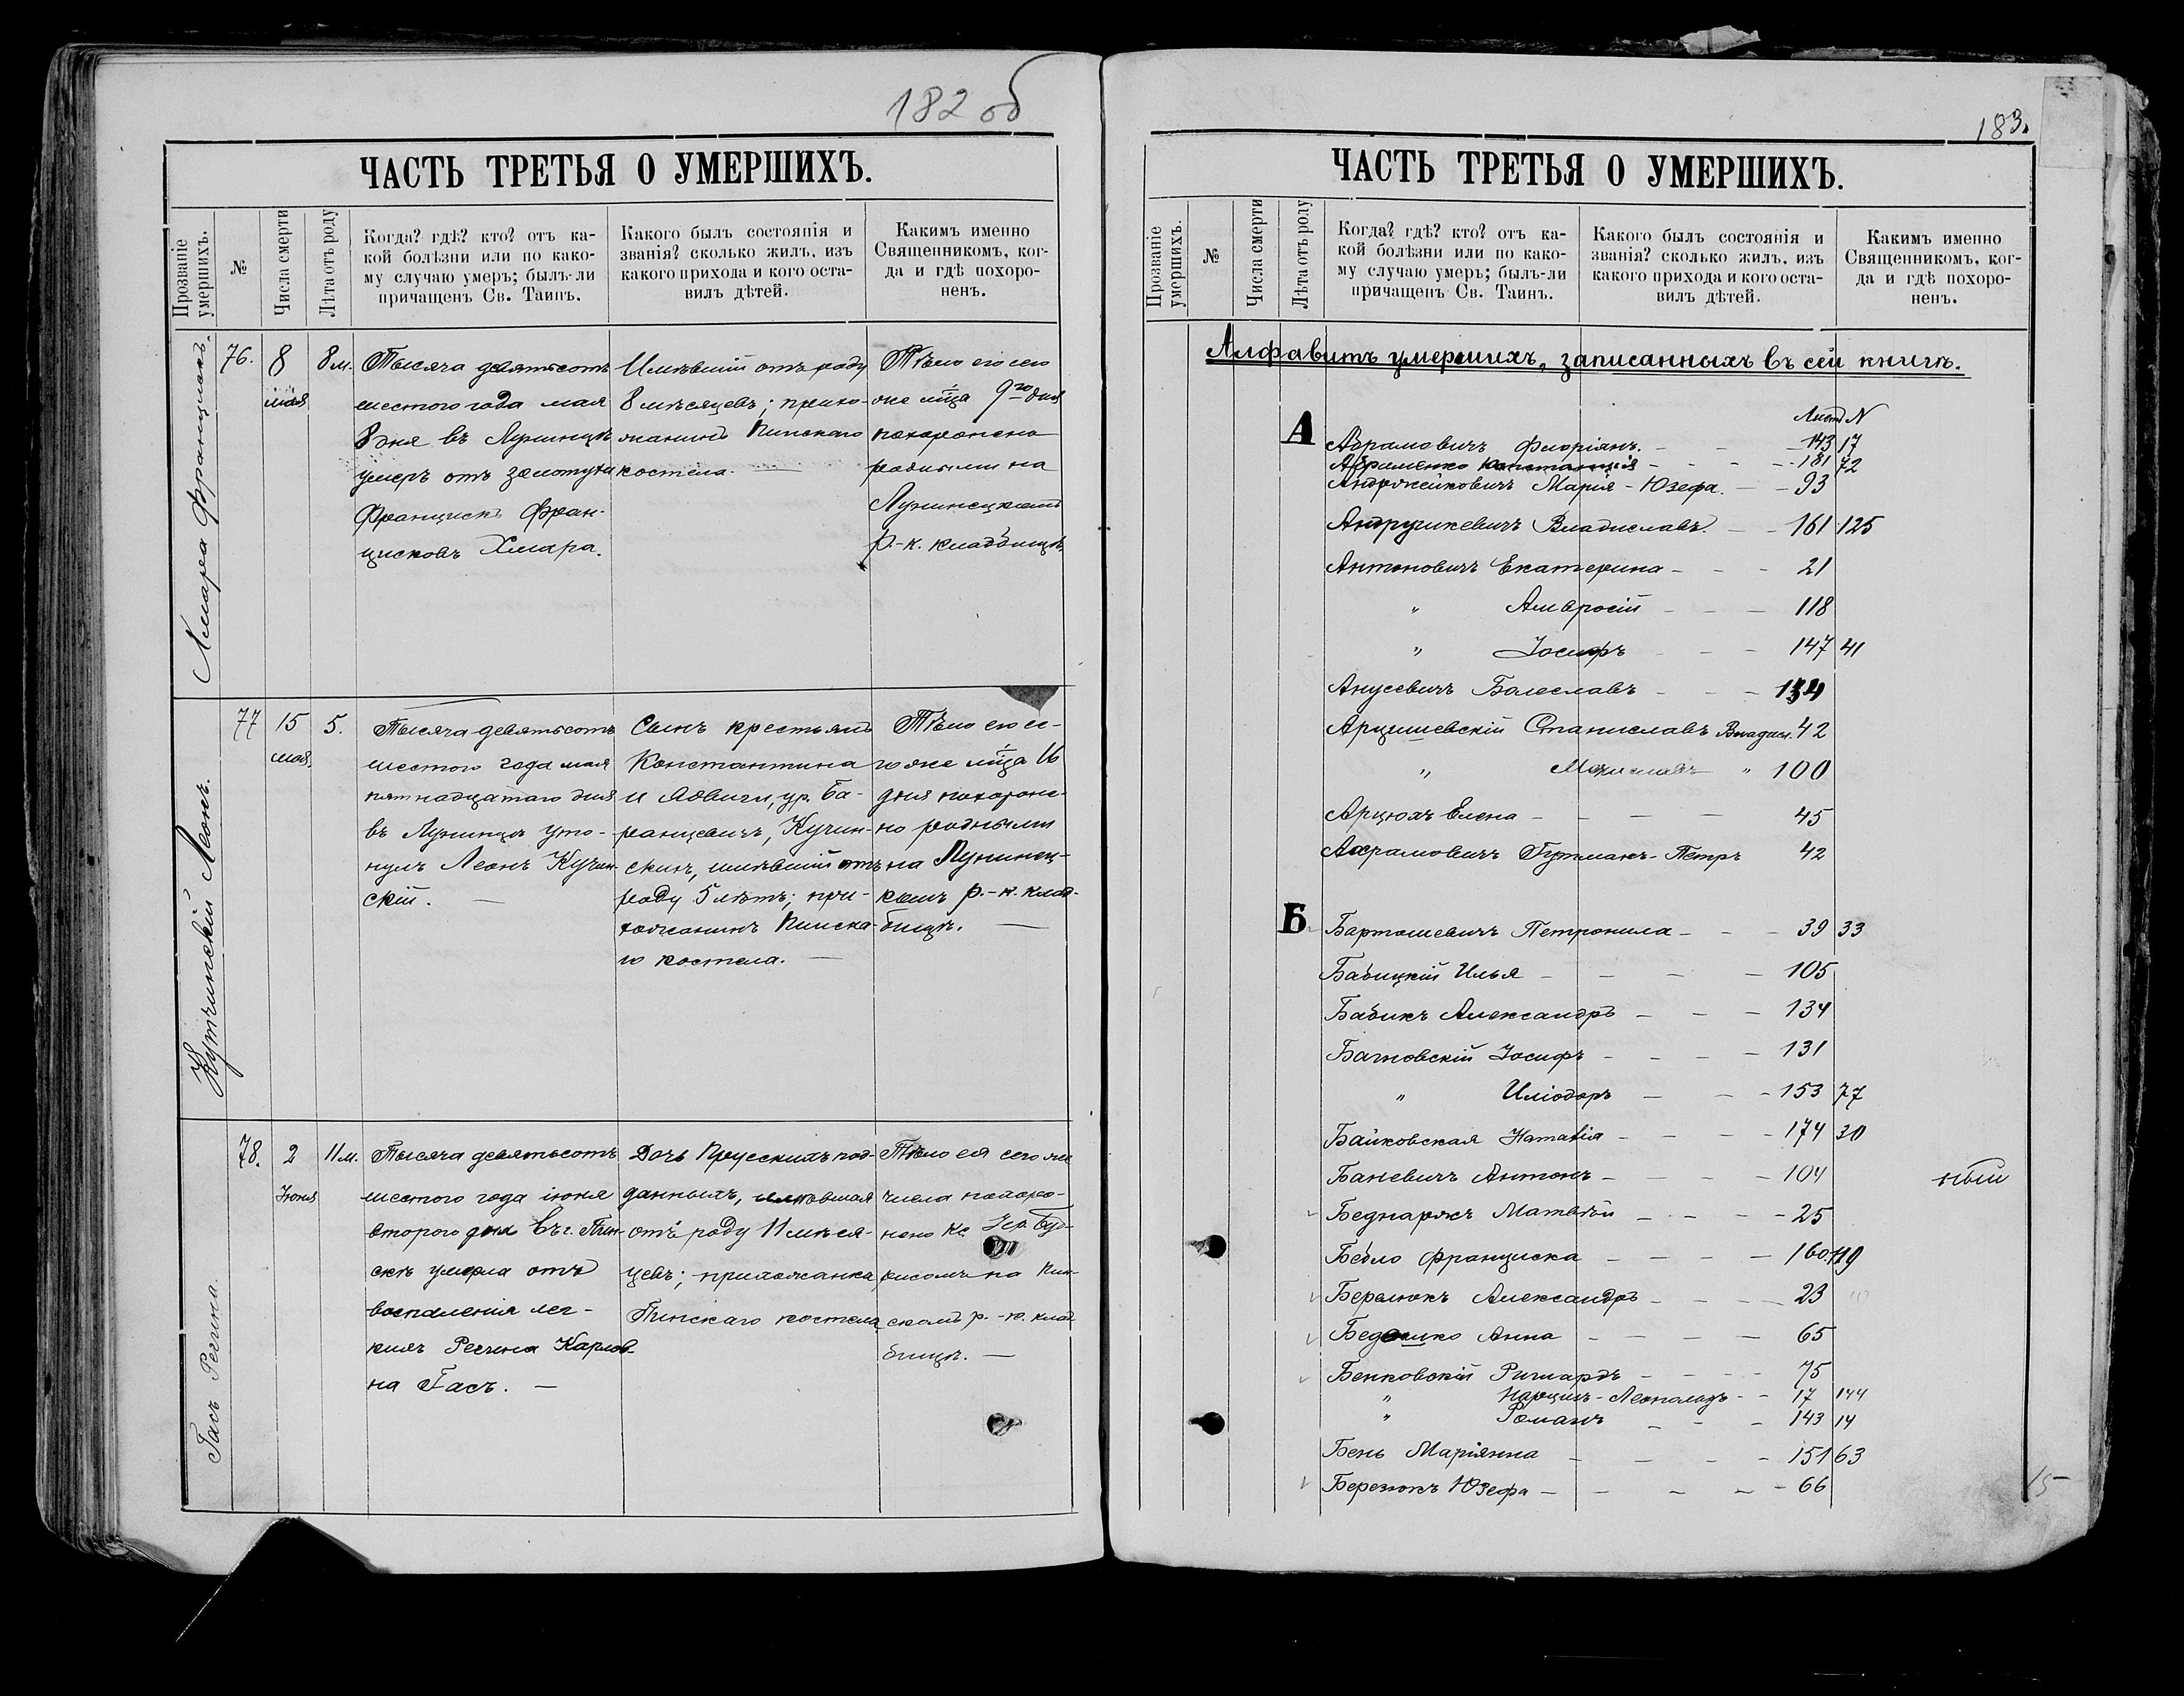 182 об
ЧАСТЬ ТРЕТЬЯ О УМЕРШИХЪ.
Прозваніе умершихъ.
№
Числа смерти
Лѣта отъ роду
Когда? гдѣ? кто? отъ ка-
кой болѣзни или по како-
му случаю умеръ; былъ-ли
причащенъ Св. Таинъ.
Какого былъ состоянія и
званія? сколько жилъ, изъ
какого прихода и кого оста-
вилъ дѣтей.
Какимъ именно
Священникомъ, ког-
да и гдѣ похоро-
ненъ.
Хмара Францискъ.
76.
8
мая
8 м.
Тысяча девятьсотъ
шестого года мая
8 дня въ Лунинцѣ
умеръ отъ золотухи
Францискъ Фран-
цисковъ Хмара.
Имѣвшій отъ роду
8 мѣсяцевъ; прихо-
жанинъ Пинскаго
костела.
Тѣло его сего
же мца 9го дня
похоронено
родными на
Лунинецкомъ
р.-к. кладбищѣ
Кучинскій Леонъ.
77
15
мая.
5.
Тысяча девятьсотъ
шестого года мая
пятнадцатаго дня
въ Лунинцѣ уто-
нулъ Леонъ Кучин-
скій.
Сынъ крестьянъ
Константина
и Ядвиги, ур. Ба-
ранцевичъ, Кучин-
скихъ, имѣвшій отъ
роду 5 лѣтъ; при-
хожанинъ Пинска-
го костела.
Тѣло его се-
го же мца 16
дня похороне-
но родными
на Лунинец-
комъ р.-к. клад-
бищѣ.
Гасъ Регина
78.
2
Іюня
11 м.
Тысяча девятьсотъ
шестого года іюня
второго дня въ г. Пин-
скѣ умерла отъ
воспаленія лег-
кихъ Регина Карлов-
на Гасъ.
Дочь Прусскихъ под-
данныхъ, имѣвшая
отъ роду 11 мѣся-
цевъ; прихожанка
Пинскаго костела
Тѣло ея сего же
числа похоро-
нено Кс.
рисомъ на Пин-
скомъ р.-к. клад
бищѣ.
183.
ЧАСТЬ ТРЕТЬЯ О УМЕРШИХЪ.
Прозваніе умершихъ.
№
Числа смерти
Лѣта отъ роду
Когда? гдѣ? кто? отъ ка-
кой болѣзни или по како-
му случаю умеръ; былъ-ли
причащенъ Св. Таинъ.
Какого былъ состоянія и
званія? сколько жилъ, изъ
какого прихода и кого оста-
вилъ дѣтей.
Какимъ именно
Священникомъ, ког-
да и гдѣ похоро-
ненъ.
Алфавитъ умершихъ, записанныхъ въ сей книгѣ.
Лист N
А
Абрамовичъ Флоріанъ. - - 143 17
Абраменко Констанція - - - 181 72
Андржейковичъ Марія-Юзефа. - 93
Андрушкевичъ Владиславъ. - 161 125
Антоновичъ Екатерина - - - 21
" Амвросій - - - 118
" Іосифъ - - - 147 41
Анусевичъ Болеславъ - - - 134
Арцишевскій Станиславъ Владисл. 42
" " 100
Арцюхъ Елена - - - - 45
Ахрамовичъ Гутманъ-Петръ 42
Б
Бартошевичъ Петронила - - - 39 33
Бабицкій Илья - - - - 105
Бабикъ Александръ - - - 134
Багновскій Іосифъ - - - - 131
" Иліодоръ - - - 153 77
Байковская Наталія - - - - 174 30
Баневичъ Антонъ - - - - 104
ный
Беднаржъ Матвѣй - - - - 25
Бебло Франциска - - - - 160 119
Берлюкъ Александръ - - - - 23
Бедошко Анна - - - - 65
Бенковскій Ришардъ - - - - 75
" Нарцизъ-Леопольдъ - - 17 144
" Романъ - - - 143 14
Бень Маріянна - - - - 151 63
Березюкъ Юзефа - - - - - 66
15